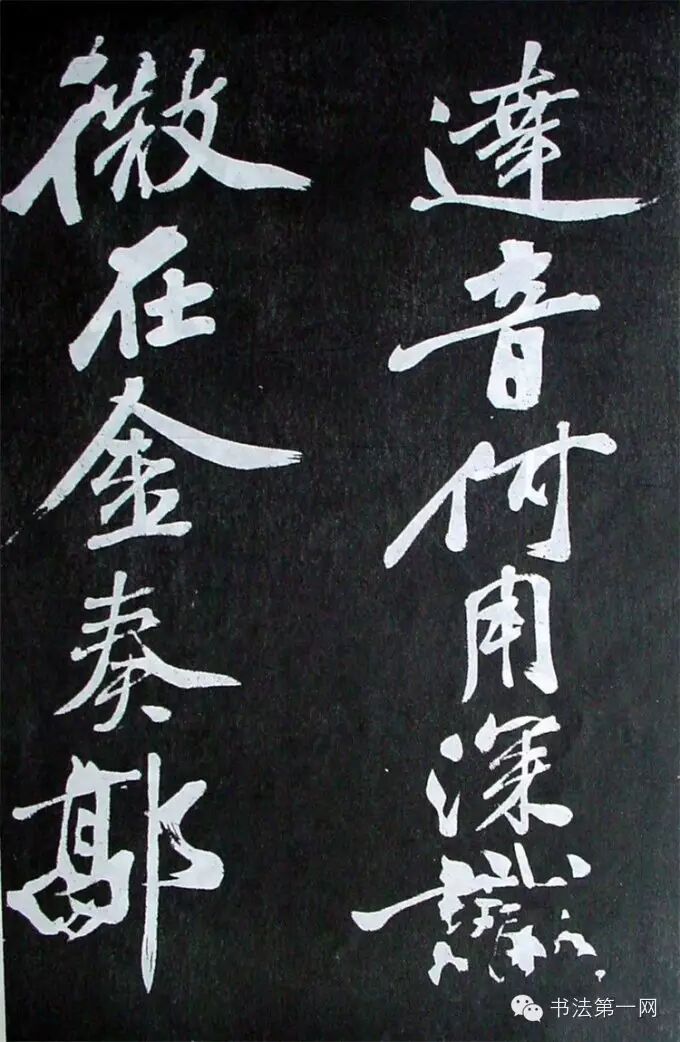 達音何用深識
微在金奏郭
书法第一网